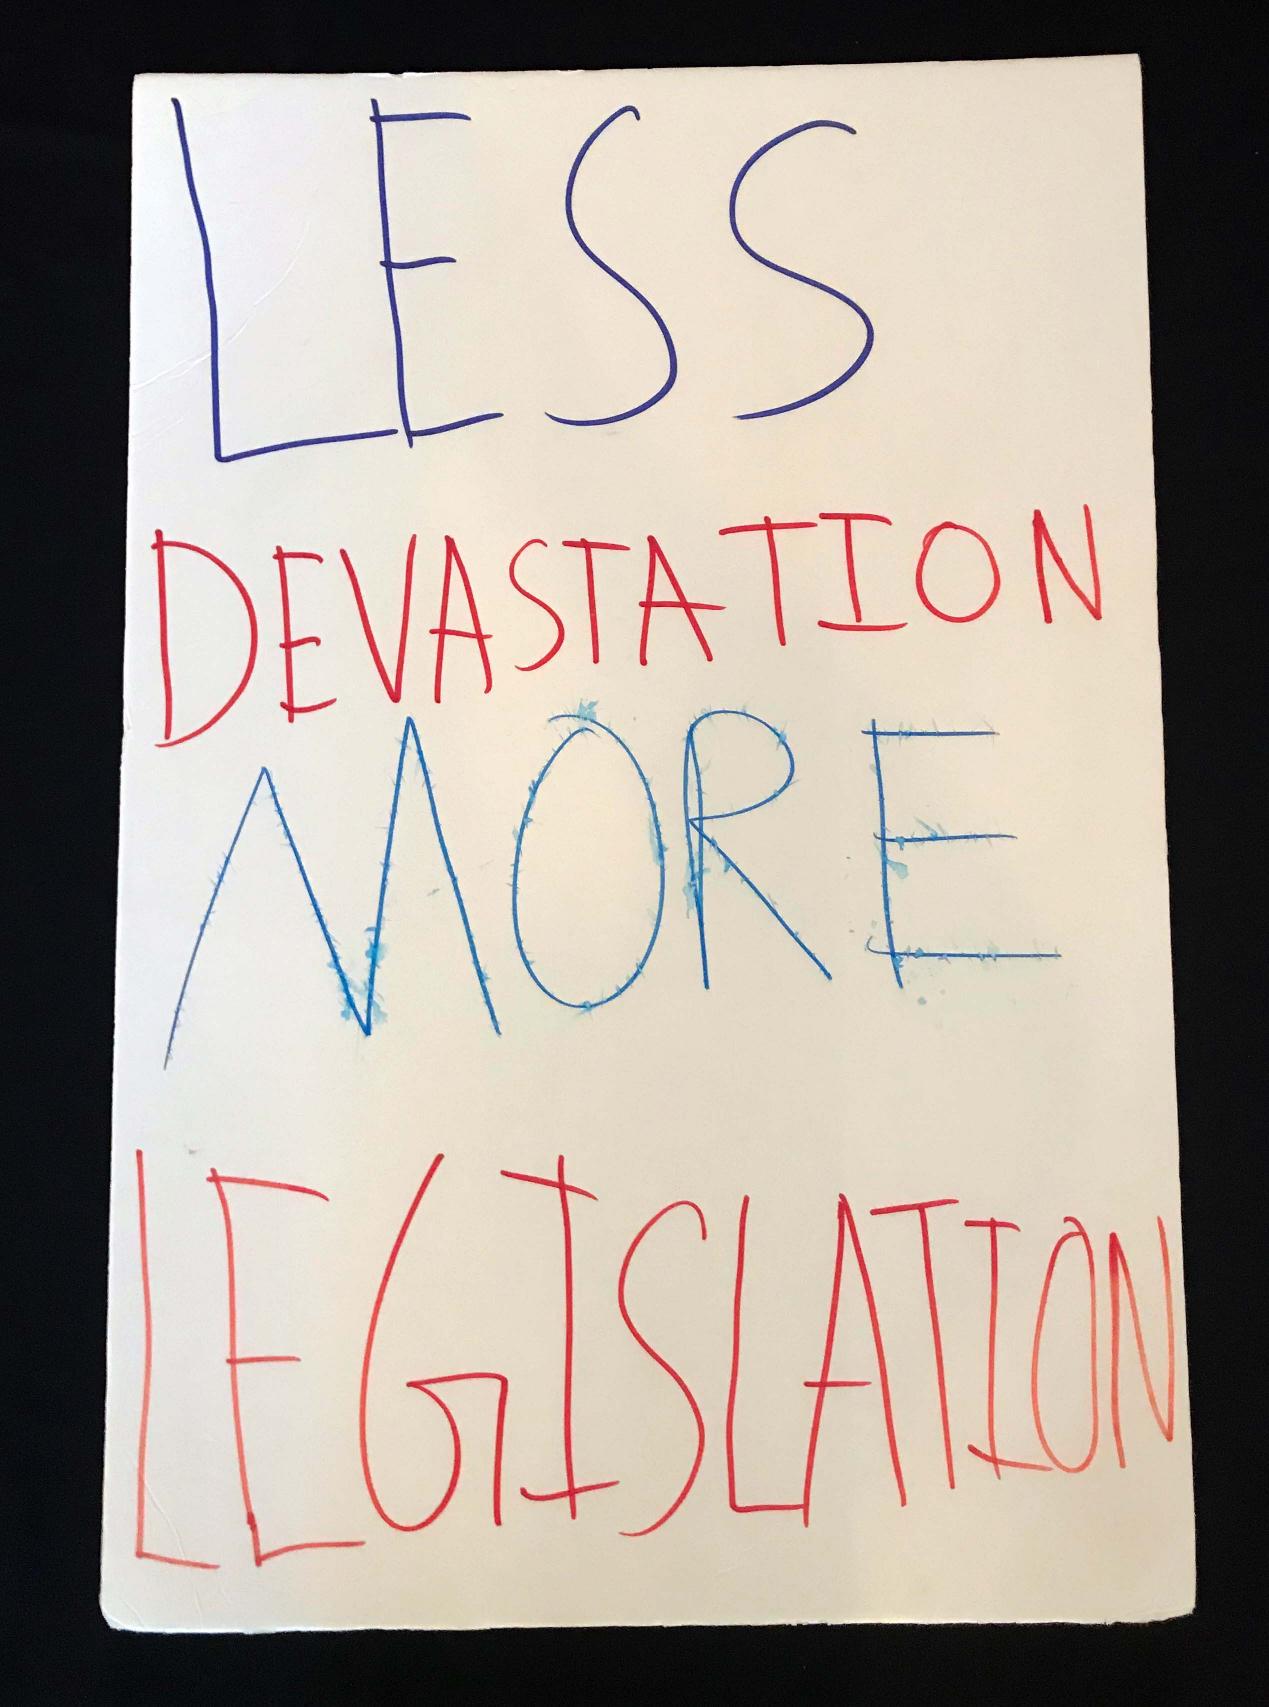 LESS
DEVASTATION
MORE
LEGISLATION